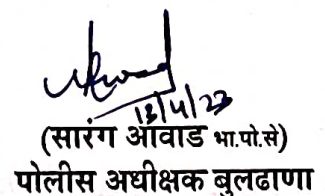 13/4/23
(सारंग आवाड भा.पो.से)
पोलीस अधीक्षक बुलढाणा